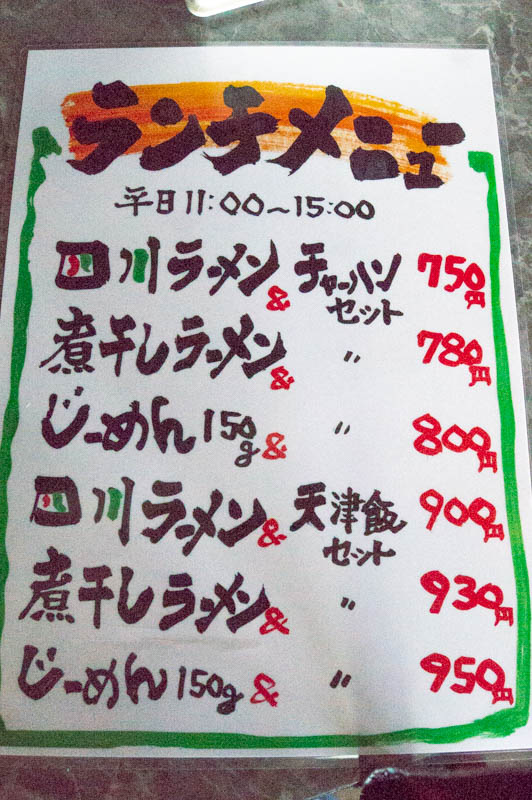 ランチメニュー
平日11:00～15:00
四川ラーメン&チャーハンセット 750円
煮干しラーメン& 〃 780円
じーめん150g& 〃 800円
四川ラーメン&天津飯セット 900円
煮干しラーメン& 〃 930円
じーめん150g& 〃 950円